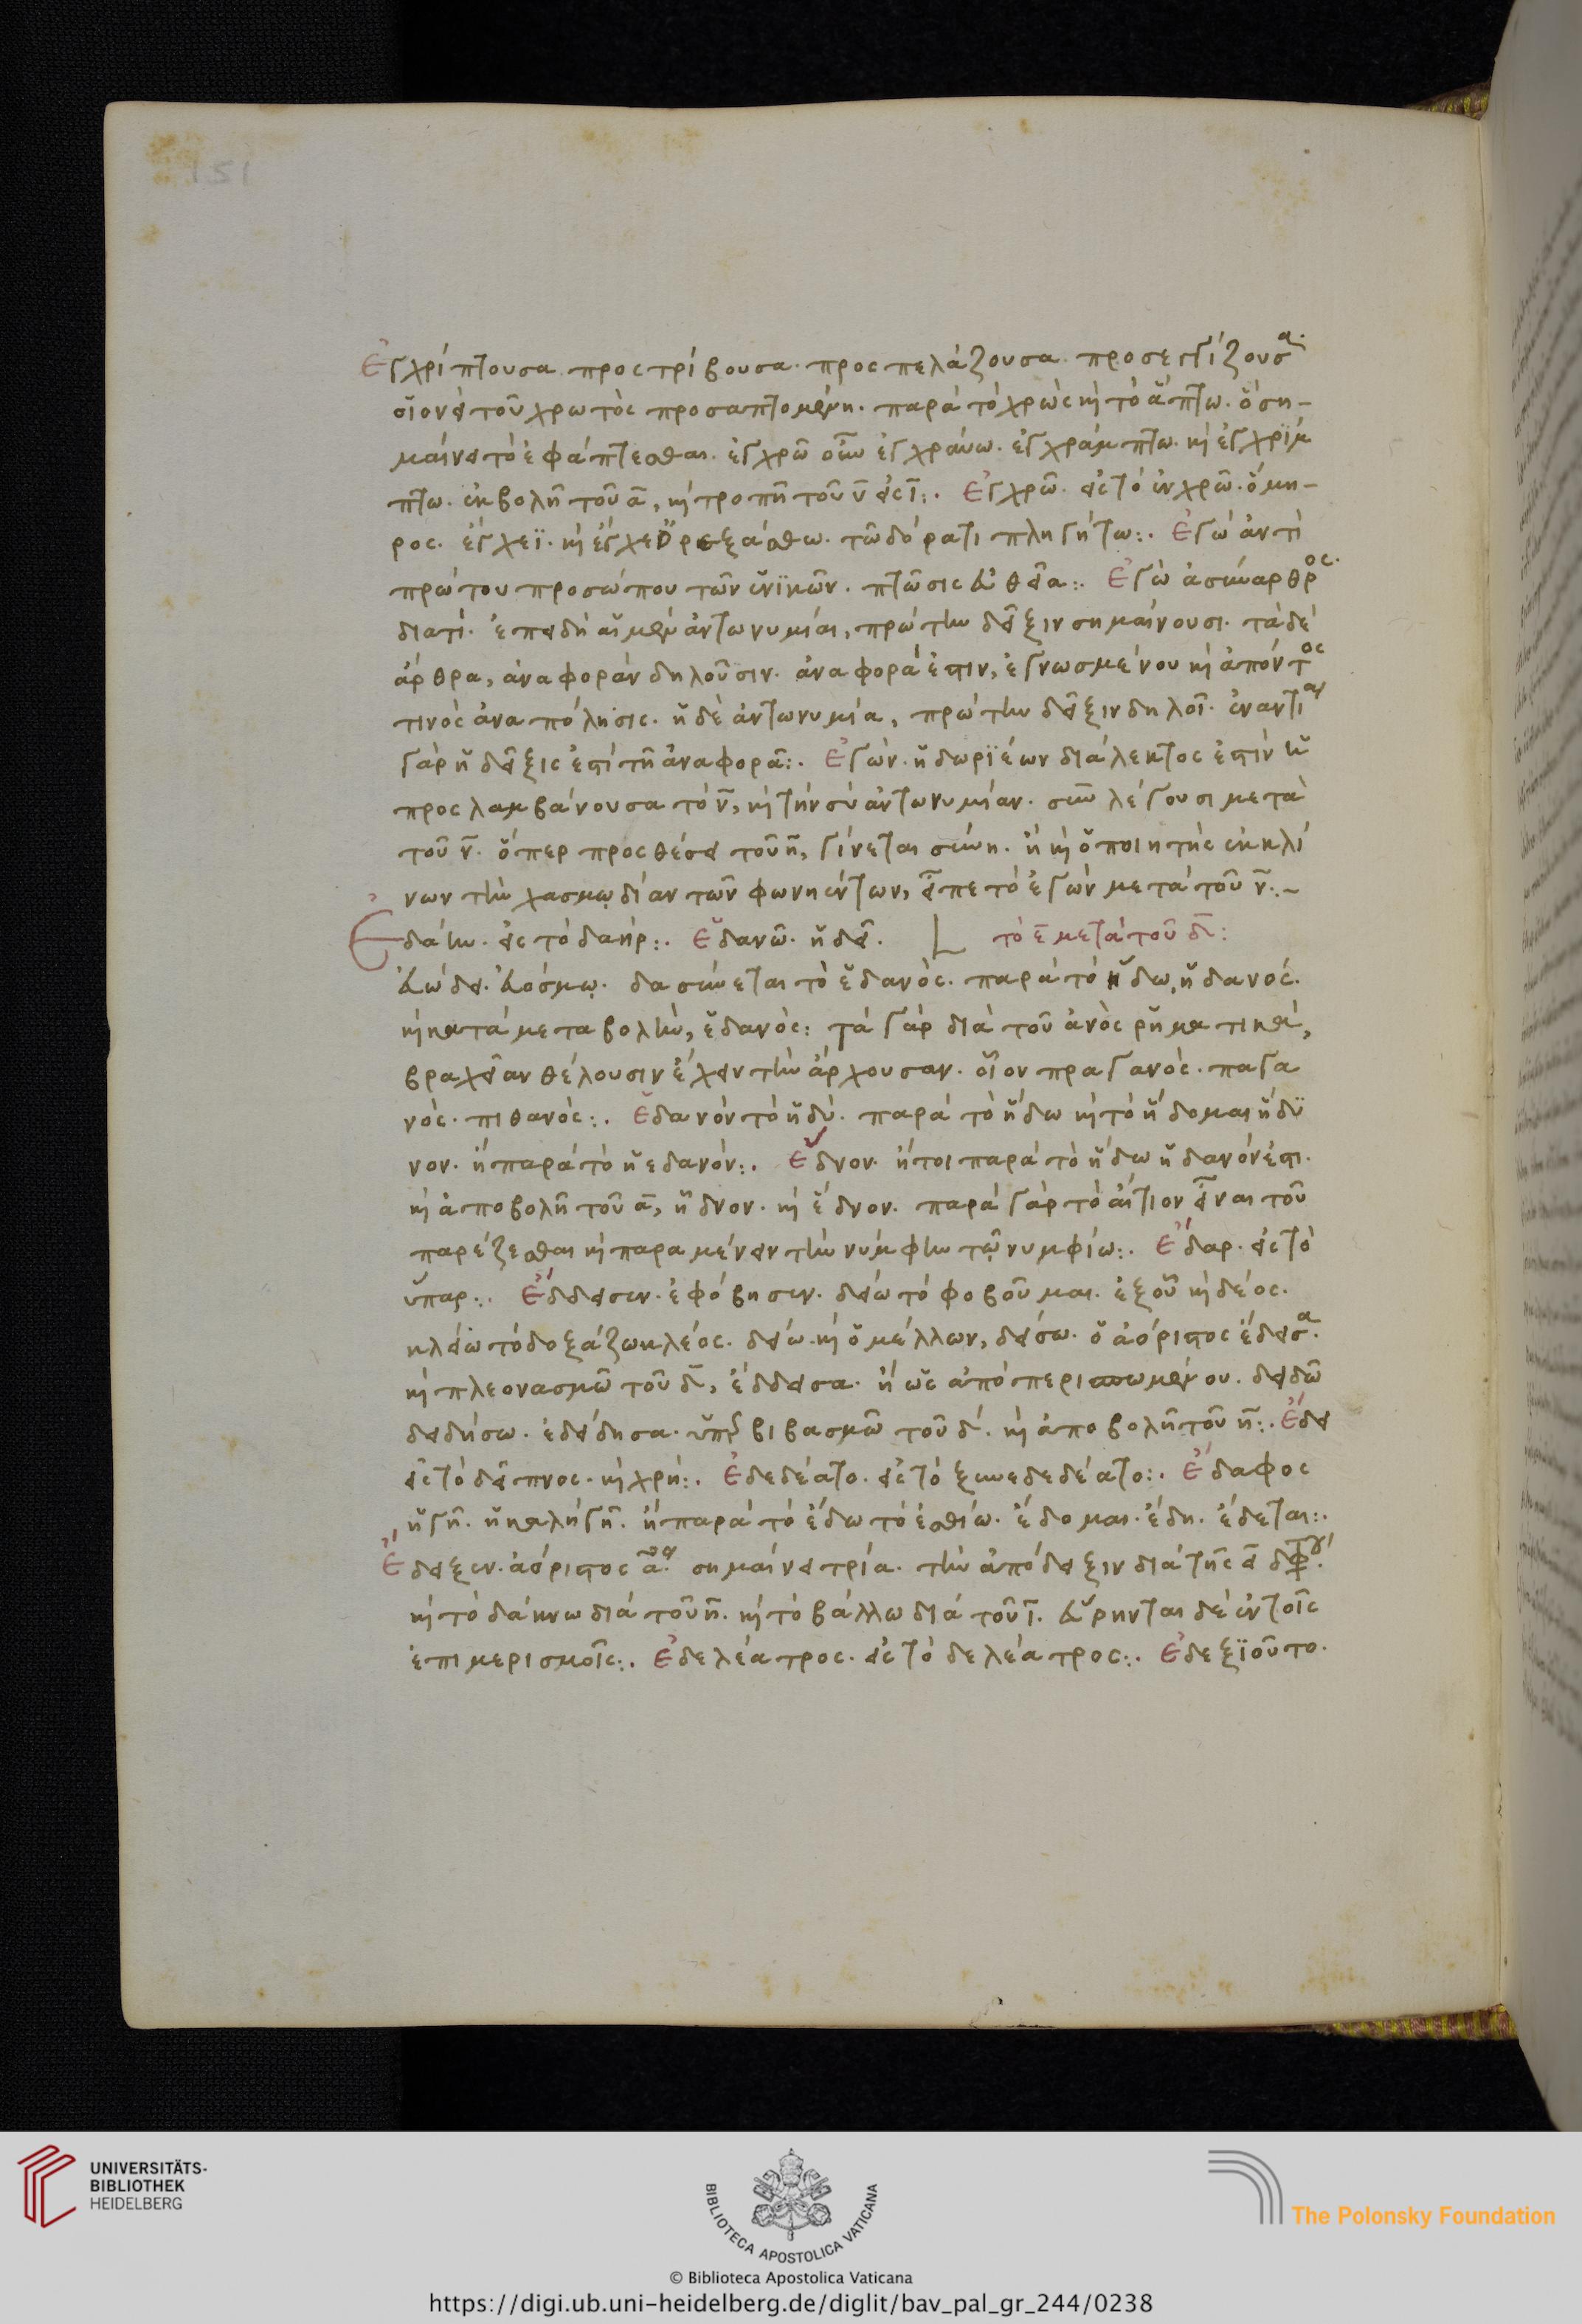 151
Ἐγχρίπτουσα προστρίβουσα· προσπελάζουσα· προσεγγίζουσα·
οἱονεὶ τοῦ χρωτὸς προσαπτομένη· παρὰ τὸ χρὼς καὶ τὸ ἅπτω· ὃ ση-
μαίνει τὸ ἐφάπτεσθαι· ἐγχρῶ οὖν ἐγχράνω· ἐγχράμπτω· καὶ ἐγχρίμ
πτω· ἐκβολῆ τοῦ α, καὶ τροπῆ τοῦ ν εἰς ϊ:. Ἐγχρῶ· εἰς τὸ ἐν χρῶ· ὅμη-
ρος· ἔγχεϊ· καὶ ἔγχει ὀρεξάσθω· τῶ δόρατι πληγήτω:. Ἐγώ ἀντὶ
πρώτου προσώπου τῶν ἑνικῶν· πτῶσις εὐθεῖα:. Ἐγὼ ἀσύναρθρος·
διατί· ἐπειδὴ αἱ μὲν ἀντωνυμίαι, πρώτην δεῖξιν σημαίνουσι· τὰ δὲ
ἄρθρα, ἀναφορὰν δηλοῦσιν· ἀναφορά ἐστιν, ἐγνωσμένου καὶ ἀπόντος
τινὸς ἀναπόλησις· ἡ δὲ ἀντωνυμία, πρώτην δεῖξιν δηλοῖ· ἐναντία
γὰρ ἡ δεῖξις ἐστὶ τῆ ἀναφορᾶ:. Ἐγών· ἡ δωριέων διάλεκτος ἐστὶν ἡ
προσλαμβάνουσα τὸ ν, καὶ τὴν σὺ ἀντωνυμίαν· σὺν λέγουσι μετὰ
τοῦ ν· ὅπερ προσθέσει τοῦ η, γίνεται σύνη· ἢ καὶ ὁ ποιητὴς ἐκκλί
νων τὴν χασμῳδίαν τῶν φωνηέντων, εἶπε τὸ ἐγὼν μετὰ τοῦ ν:-
Ἐδάην· εἰς τὸ δαήρ:. Ἑδανῶ· ἡδεῖ· τὸ ε μετὰ τοῦ δ:
εὐώδει· εὐόσμῳ· δασύνεται τὸ ἑδανὸς· παρὰ τὸ ἥδω, ἡδανός·
καὶ κατὰ μεταβολὴν, ἑδανὸς: τὰ γὰρ διὰ τοῦ ἀνὸς ῥηματικὰ,
βραχεῖαν θέλουσιν ἔχειν τὴν ἄρχουσαν· οἷον πραγανὸς· παγα
νὸς· πιθανὸς:. Ἑδανόν τὸ ἡδύ· παρὰ τὸ ἥδω καὶ τὸ ἥδομαι ἡδύ
νον· ἢ παρὰ τὸ ἡεδανόν:. Ἕδνον· ἤτοι παρὰ τὸ ἥδω ἡδανόν ἐστι·
καὶ ἀποβολῆ τοῦ α, ἥδνον· καὶ ἕδνον· παρὰ γὰρ τὸ αἴτιον εἶναι τοῦ
παρέζεσθαι καὶ παραμένειν τὴν νύμφην τῷ νυμφίω:. Ἔδαρ· εἰς τὸ
ὕπαρ:. Ἔδδεισεν· ἐφόβησεν· δείω τὸ φοβοῦμαι· ἐξ οὗ καὶ δέος·
κλείω τὸ δοξάζω κλέος· δείω· καὶ ὁ μέλλων, δείσω· ὁ ἀόριστος ἔδεισα·
καὶ πλεονασμῶ τοῦ δ, ἔδδεισα· ἢ ὡς ἀπὸ περισπωμένου· δειδῶ
δειδήσω· ἐδείδησα· ὑπερβιβασμῶ τοῦ δ· καὶ ἀποβολῆ τοῦ η:. Ἔδει
εἰς τὸ δεῖπνος· καὶ χρή:. Ἐδεδέατο· εἰς τὸ ξυνεδεδέατο:. Ἔδαφος
ἡ γῆ· ἡ καλὴ γῆ· ἢ παρὰ τὸ ἔδω τὸ ἐσθίω· ἔδομαι· ἔδη· ἔδεται:.
Ἔδειξεν· ἀόριστος α· σημαίνει τρία· τὴν ἀπόδειξιν διὰ τῆς ει
καὶ τὸ δάκνω διὰ τοῦ η· καὶ τὸ βάλλω διὰ τοῦ ι· εὕρηνται δὲ ἐν τοῖς
ἐπιμερισμοῖς:. Ἐδελέατρος· εἰς τὸ δελέατρος:. Ἐδεξιοῦντο·
UNIVERSITÄTS-
BIBLIOTHEK
HEIDELBERG
BIBLIOTECA APOSTOLICA VATICANA
The Polonsky Foundation
© Biblioteca Apostolica Vaticana
https://digi.ub.uni-heidelberg.de/diglit/bav_pal_gr_244/0238